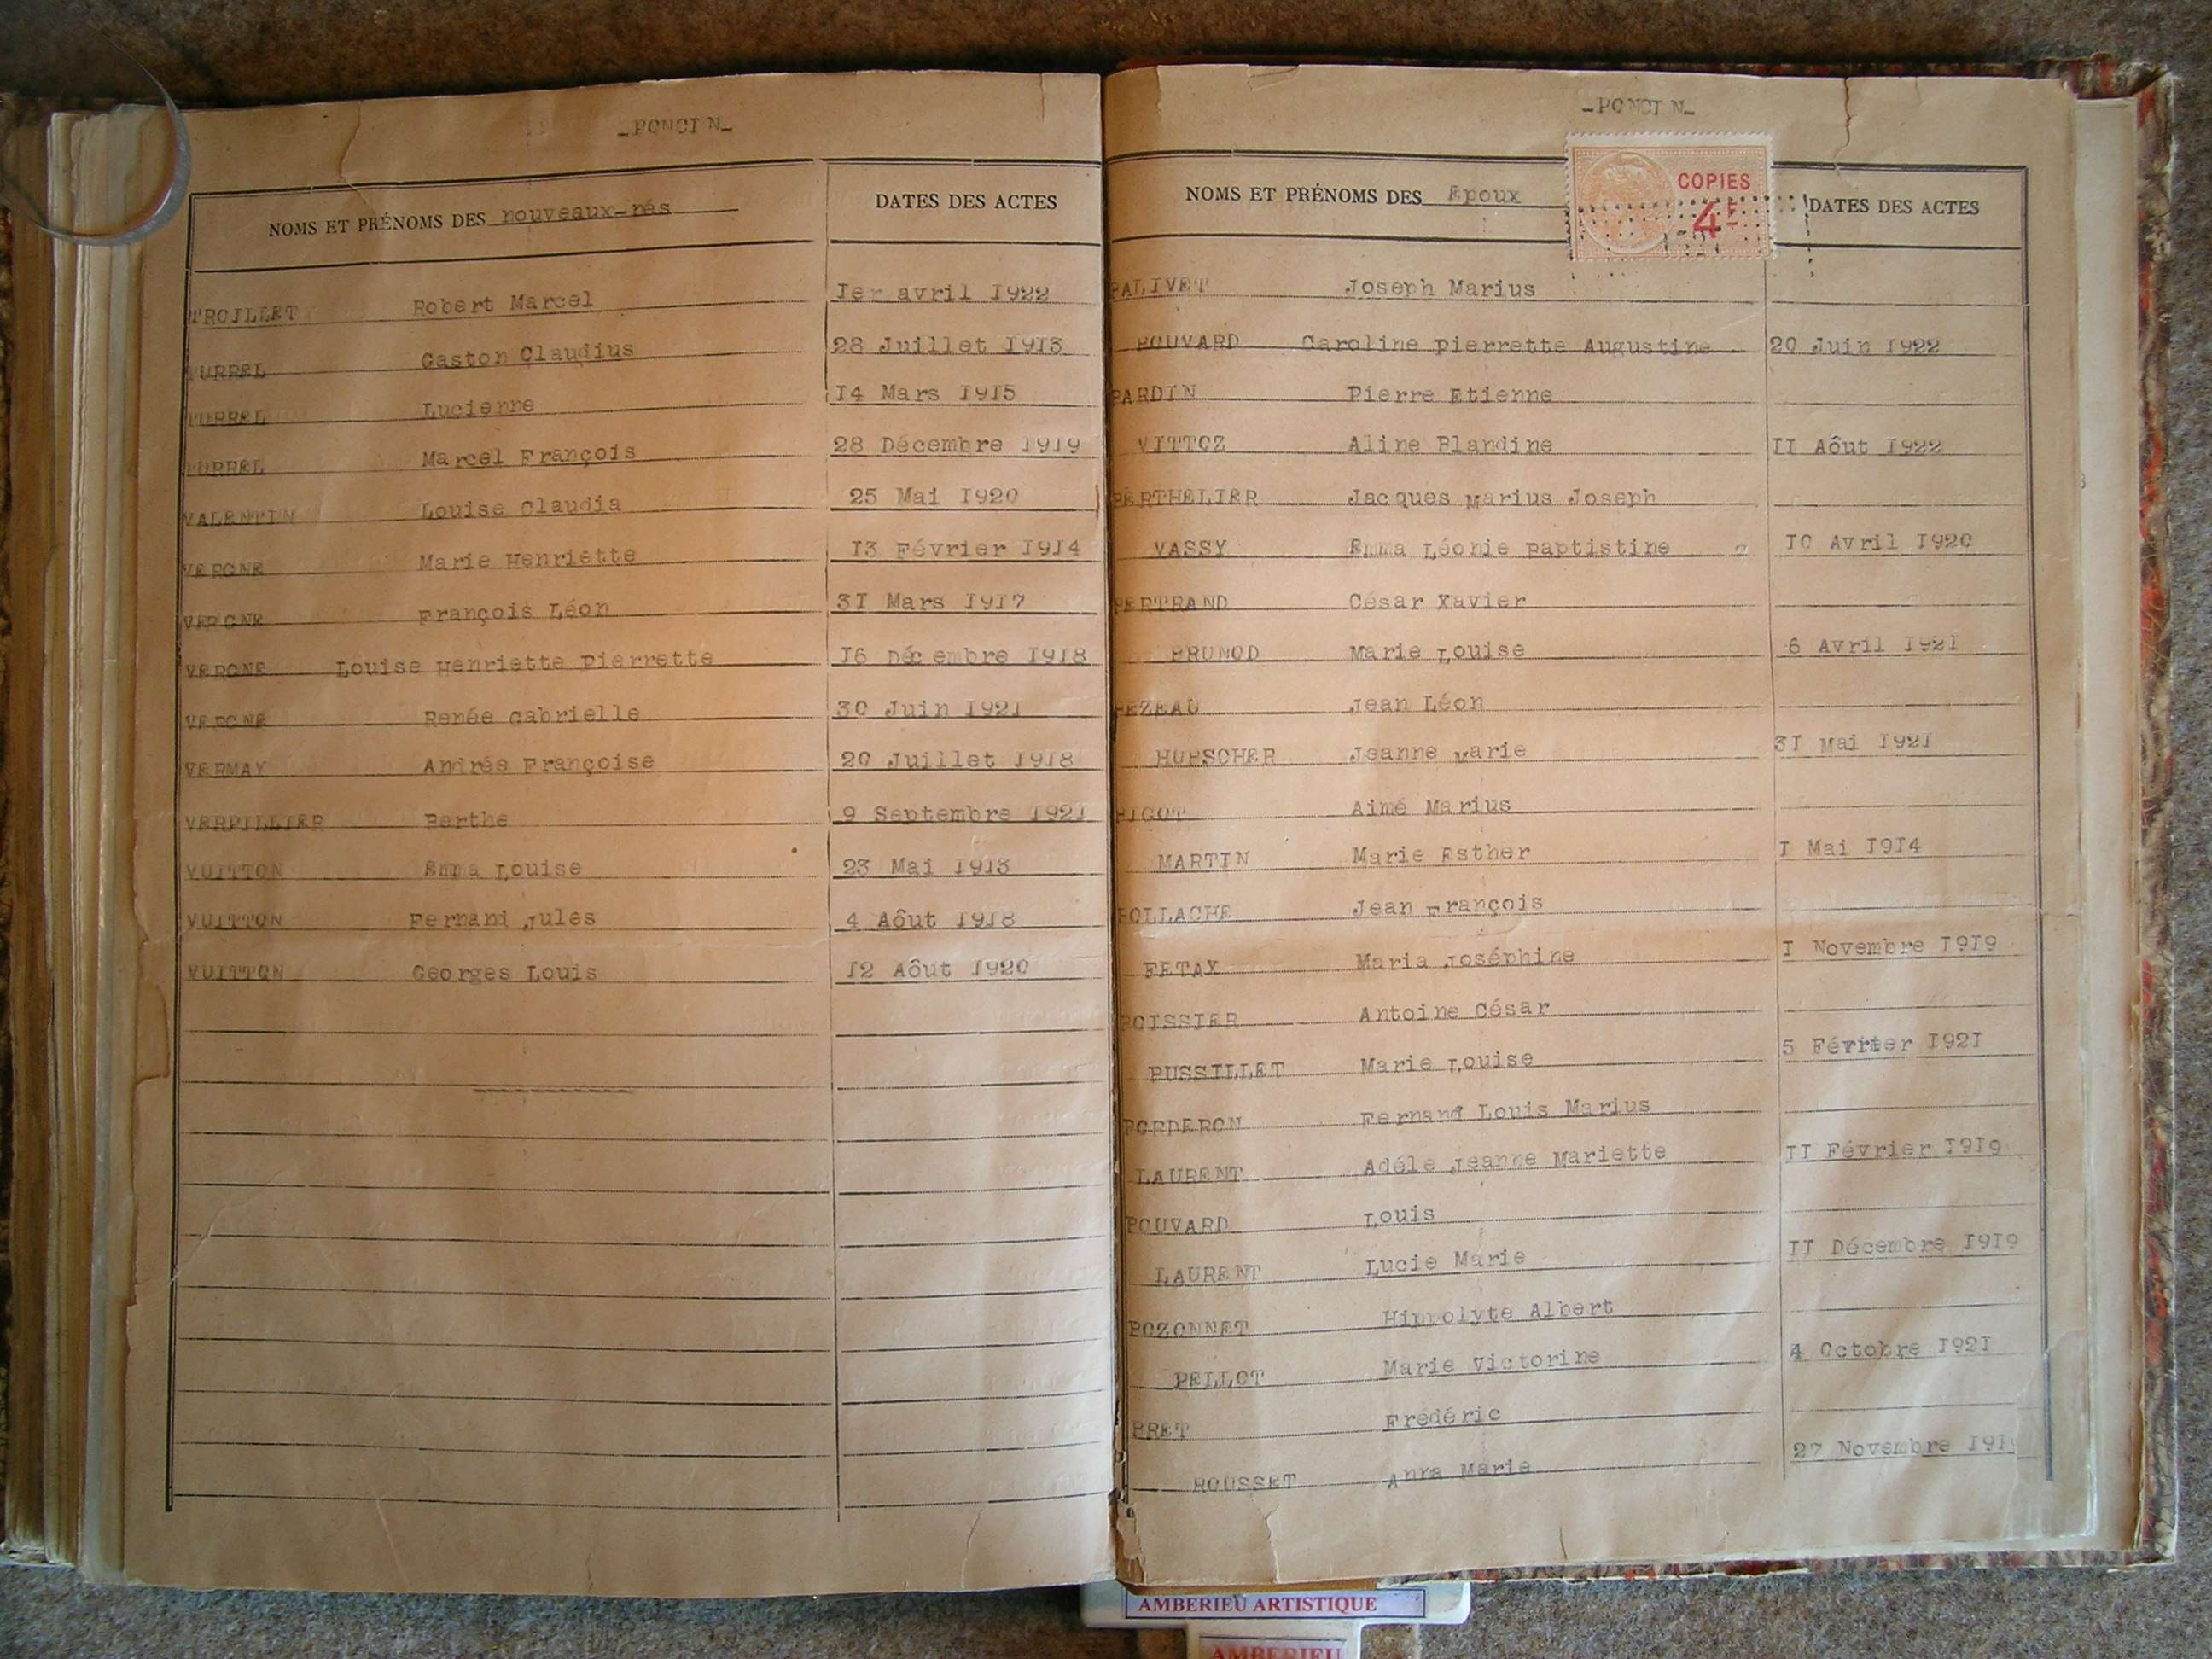 _PONCIN_
NOMS ET PRÉNOMS DES nouveaux-nés DATES DES ACTES
TROILLET Robert Marcel Ier avril 1922
TURREL Gaston Claudius 28 Juillet 1913
TURREL Lucienne 14 Mars 1915
TURREL Marcel François 28 Décembre 1919
VALENTIN Louise Claudia 25 Mai 1920
VERGNE Marie Henriette 13 Février 1914
VERGNE François Léon 31 Mars 1917
VERGNE Louise Henriette Pierrette 16 Décembre 1918
VERGNE Renée Gabrielle 30 Juin 1921
VERMAY Andrée Françoise 20 Juillet 1918
VERPILLIER Berthe 9 Septembre 1921
VUITTON Emma Louise 23 Mai 1913
VUITTON Fernand Jules 4 Aôut 1918
VUITTON Georges Louis 12 Aôut 1920
_PONCIN_
NOMS ET PRÉNOMS DES Epoux DATES DES ACTES
COPIES
4F
BALIVET Joseph Marius
BOUVARD Caroline Pierrette Augustine 20 Juin 1922
BARDIN Pierre Etienne
VITTOZ Aline Blandine 11 Aôut 1922
BERTHELIER Jacques Marius Joseph
VASSY Emma Léonie Baptistine 10 Avril 1920
BERTRAND César Xavier
BRUNOD Marie Louise 6 Avril 1921
BEZEAU Jean Léon
HUBSCHER Jeanne Marie 31 Mai 1921
BIGOT Aimé Marius
MARTIN Marie Esther 1 Mai 1914
BOLLACHE Jean François
FETAX Maria Joséphine 1 Novembre 1919
BOISSIER Antoine César
BUSSILLET Marie Louise 5 Février 1921
BORDERON Fernand Louis Marius
LAURENT Adéle Jeanne Mariette 11 Février 1919
BOUVARD Louis
LAURENT Lucie Marie 11 Décembre 1919
BOZONNET Hippolyte Albert
PELLOT Marie Victorine 4 Octobre 1921
BRET Frédéric
ROUSSET Anna Marie 27 Novembre
AMBERIEU ARTISTIQUE
AMBERIEU